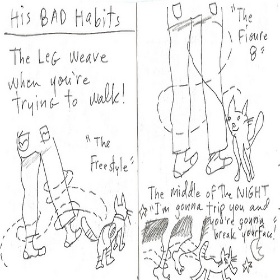 His BAD Habits
The Leg Weave
when you're
trying to walk!
"The
Freestyle"
"The
Figure
8"
The Middle of The NIGHT
"I'm gonna trip you and
you're gonna
break your face"